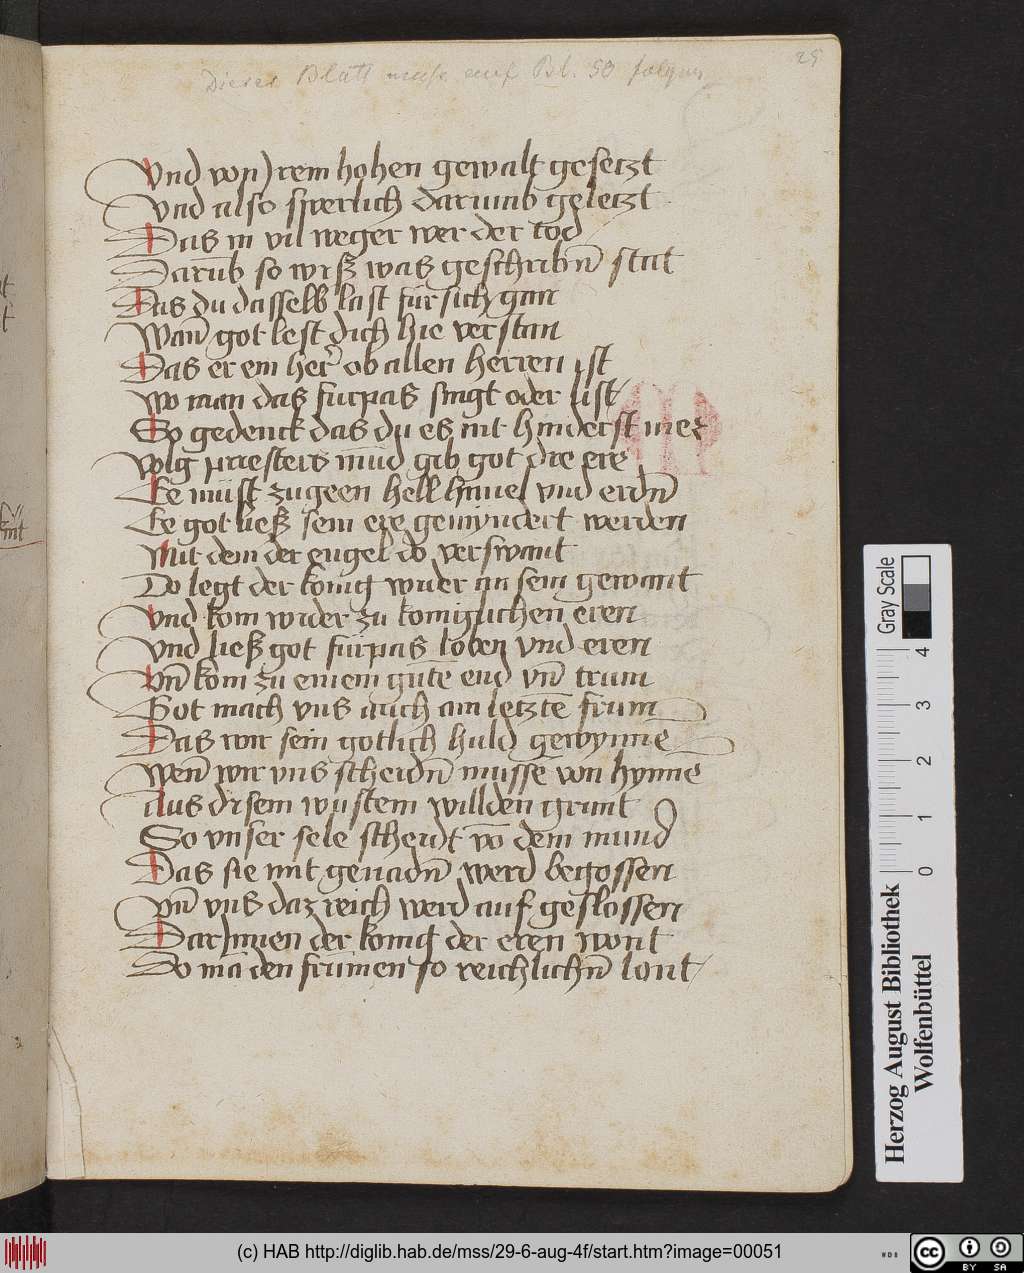 Dieses Blatt muss auf Bl. 50 folgen
25
Vnd von Jrem hohen gewalt gesetzt
Vnd also swerlich darumb geletzt
Das in vil weger wer der tod
Darūb so wiß was geschribn̄ stat
Das du dasselb last für sich gan
Wan̄ got lest dich hie verstan
Das er ein her̄ ob allen herren ist
Wo man das furpas singt oder list
So gedenck das du es nit hinderst mer
Volg priesters mūd gib got die ere
Ee müst zugeen hell himel vnd erdn̄
Ee got ließ sein ere gemyndert werden
Mit dem der engel do verswant
Do legt der konig wider an sein gewant
Vnd kom wider zu koniglichen eren
Vnd ließ got fürpas loben vnd eren
Vn̄ kom zu einem gutē end vn̄ frum
Got mach vns auch am letztē frum
Das wir sein gotlich huld gewynnē
Wen̄ wir vns scheidn̄ müsse von hynnē
Aus disem wüstem willden grunt
So vnser sele scheidt vō dem mund
Das sie mit genadn̄ werd begossen
Vn̄ vns daz reich werd auf geslossen
Dar Jnnen der konig der eren wont
Do mā den frūmen so reichlichn̄ lont
Gray Scale
0 1 2 3 4
Herzog August Bibliothek
Wolfenbüttel
(c) HAB http://diglib.hab.de/mss/29-6-aug-4f/start.htm?image=00051
WDB
cc
BY SA